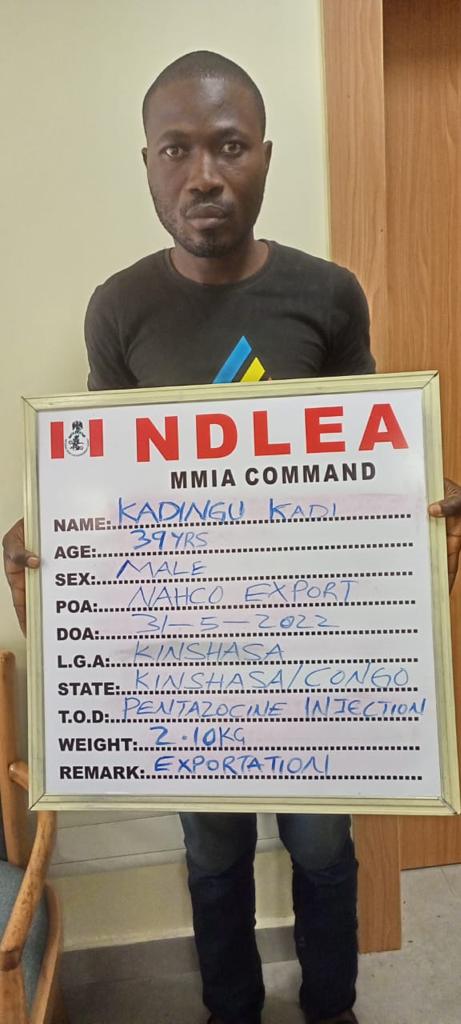 NDLEA
MMIA COMMAND
NAME: KADINGU KADI
AGE: 39YRS
SEX: MALE
POA: NAHCO EXPORT
DOA: 31-5-2022
L.G.A: KINSHASA
STATE: KINSHASA/CONGO
T.O.D: PENTAZOCINE INJECTION
WEIGHT: 2.10KG
REMARK: EXPORTATION